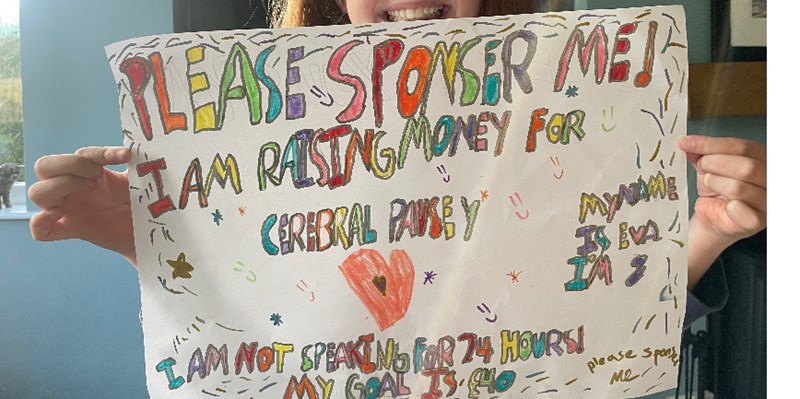 PLEASE SPONSER ME!
I AM RAISING MONEY FOR
CEREBRAL
MY NAME
IS EVA
I'M
I AM NOT SPEAKING FOR 24 HOURS!
MY GOAL IS £40
please
me